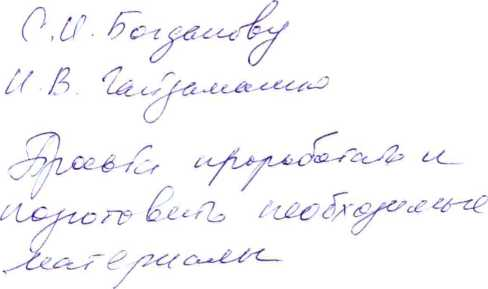 С.И. Богданову
И.В. Гайдамашко
Просьба проработать и
подготовить необходимые
материалы